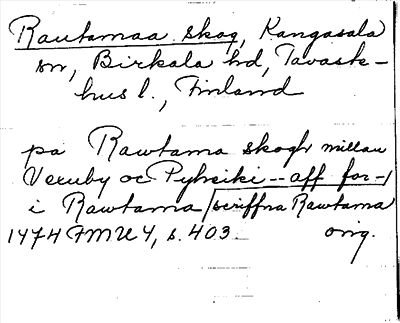 Rautamaa skog, Kangasala
sn, Birkala hd, Tavast-
hus l., Finland
pa Rawtama skogh millan
Veruby oc Pyheiki -- aff for-
i Rawtama scriffna Rawtama
1474 FMU 4, s. 403. orig.